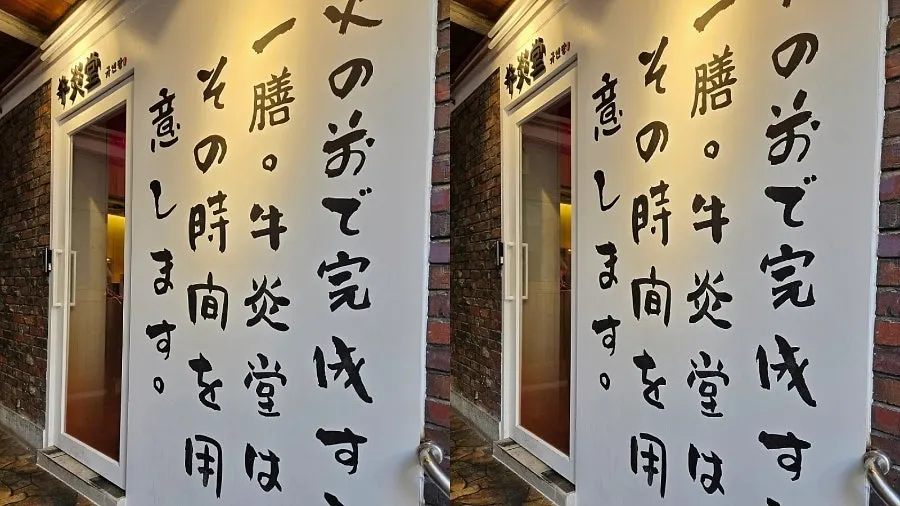 牛炎堂
火の前で完成す
一膳。牛炎堂は
その時間を用
意します。
牛炎堂
の前で完成す
一膳。牛炎堂は
その時間を用
意します。